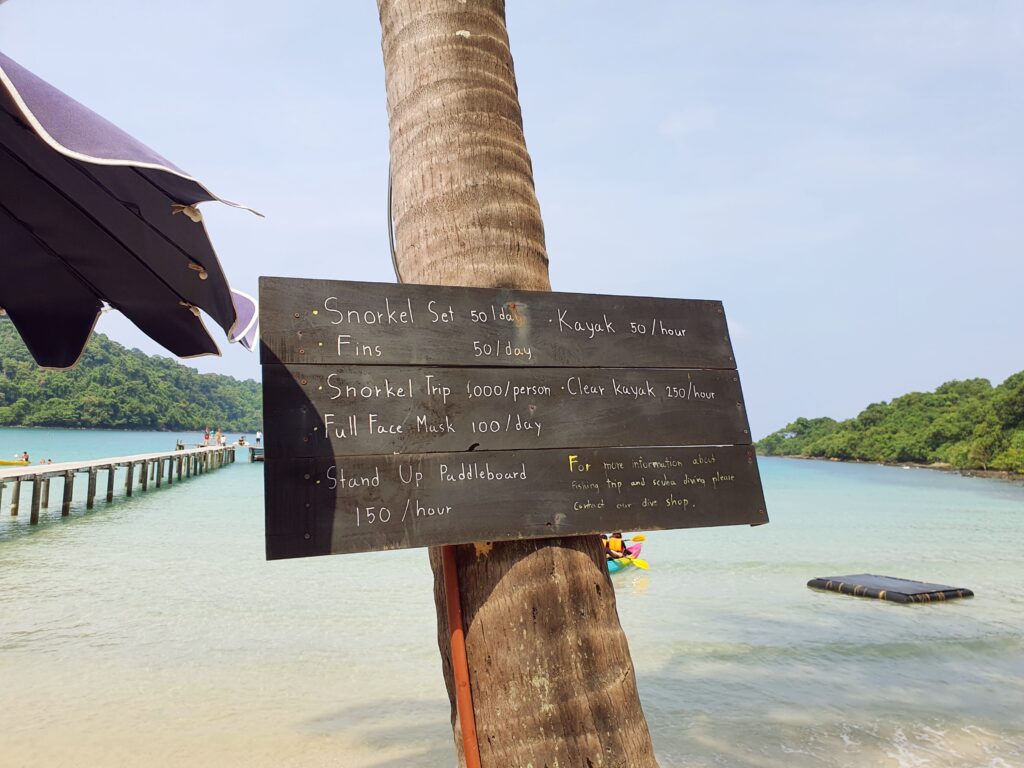 • Snorkel Set 50/day
Fins 50/day
• Snorkel Trip 1,000/person
• Full Face Mask 100/day
• Stand Up Paddleboard
150/hour
• Kayak 50/hour
• Clear Kayak 250/hour
For more information about
fishing trip and scuba diving please
contact our dive shop.